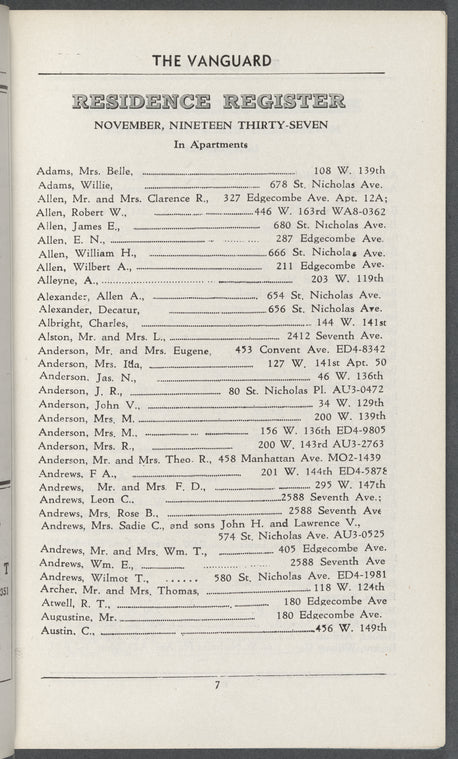 THE VANGUARD
RESIDENCE REGISTER
NOVEMBER, NINETEEN THIRTY-SEVEN
In Apartments
Adams, Mrs. Belle, 108 W. 139th
Adams, Willie, 678 St. Nicholas Ave.
Allen, Mr. and Mrs. Clarence R., 327 Edgecombe Ave. Apt. 12A;
Allen, Robert W., 446 W. 163rd WA8-0362
Allen, James E., 680 St. Nicholas Ave.
Allen, E. N., 287 Edgecombe Ave.
Allen, William H., 666 St. Nicholas Ave.
Allen, Wilbert A., 211 Edgecombe Ave.
Alleyne, A., 203 W. 119th
Alexander, Allen A., 654 St. Nicholas Ave.
Alexander, Decatur, 656 St. Nicholas Ave.
Albright, Charles, 144 W. 141st
Alston, Mr. and Mrs. L., 2412 Seventh Ave.
Anderson, Mr. and Mrs. Eugene, 453 Convent Ave. ED4-8342
Anderson, Mrs. Ida, 127 W. 141st Apt. 50
Anderson, Jas. N., 46 W. 136th
Anderson, J. R., 80 St. Nicholas Pl. AU3-0472
Anderson, John V., 34 W. 129th
Anderson, Mrs. M. 200 W. 139th
Anderson, Mrs. M., 156 W. 136th ED4-9805
Anderson, Mrs. R., 200 W. 143rd AU3-2763
Anderson, Mr. and Mrs. Theo. R., 458 Manhattan Ave. MO2-1439
Andrews, F A., 201 W. 144th ED4-5878
Andrews, Mr. and Mrs. F. D., 295 W. 147th
Andrews, Leon C., 2588 Seventh Ave.;
Andrews, Mrs. Rose B., 2588 Seventh Ave
Andrews, Mrs. Sadie C., and sons John H. and Lawrence V.,
574 St. Nicholas Ave. AU3-0525
Andrews, Mr. and Mrs. Wm. T., 405 Edgecombe Ave.
Andrews, Wm. E., 2588 Seventh Ave
Andrews, Wilmot T., ...... 580 St. Nicholas Ave. ED4-1981
Archer, Mr. and Mrs. Thomas, 118 W. 124th
Atwell, R. T., 180 Edgecombe Ave
Augustine, Mr. 180 Edgecombe Ave.
Austin, C., 456 W. 149th
7
T
351